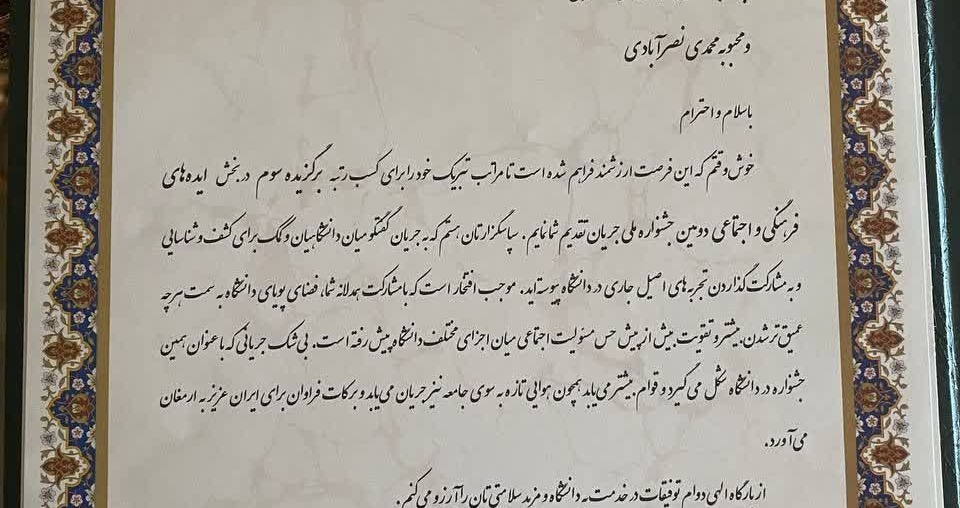 و محبوبه محمدی نصرآبادی
باسلام و احترام
خوش‌وقتم که این فرصت ارزشمند فراهم شده است تا مراتب تبریک خود را برای کسب رتبه برگزیده سوم در بخش ایده‌های
فرهنگی و اجتماعی دومین جشنواره ملی جریان تقدیم شما نمایم. سپاسگزارتان هستم که به جریان گفتگو میان دانشگاهیان و کمک برای کشف و شناسایی
و به مشارکت گذاردن تجربه‌های اصیل جاری در دانشگاه پیوسته‌اید. موجب افتخار است که با مشارکت همدلانه شما، فضای پویای دانشگاه به سمت هرچه
عمیق‌تر شدن، بیشتر و تقویت بیش از پیش حس مسئولیت اجتماعی میان اجزای مختلف دانشگاه پیش رفته است. بی‌شک جریانی که با عنوان همین
جشنواره در دانشگاه شکل می‌گیرد و قوام بیشتر می‌یابد همچون هوایی تازه به سوی جامعه نیز جریان می‌یابد و برکات فراوان برای ایران عزیز به ارمغان
می‌آورد.
از بارگاه الهی دوام توفیقات در خدمت به دانشگاه و مزید سلامتی‌تان را آرزو می‌کنم.